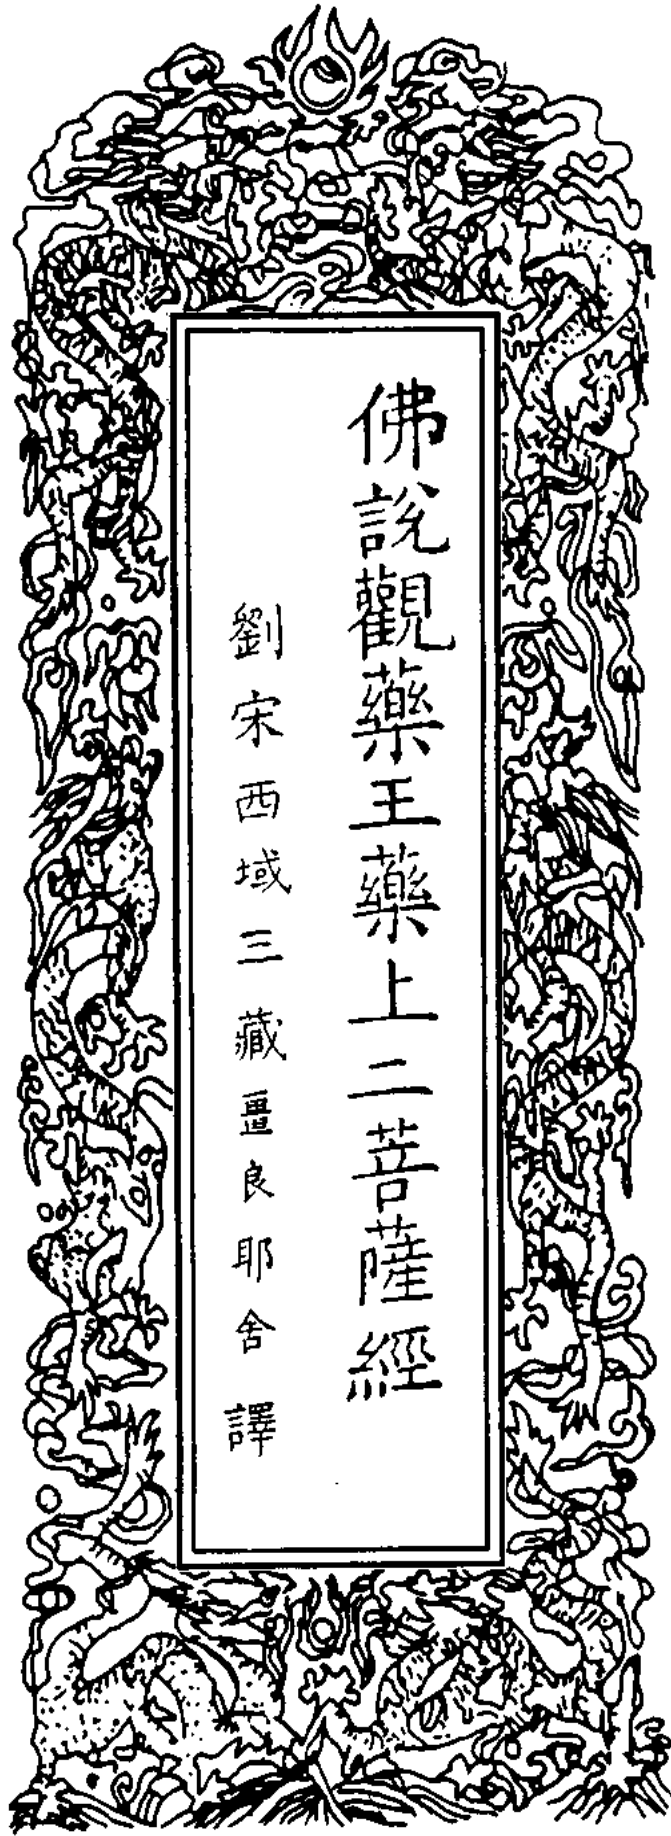 佛說觀藥王藥上二菩薩經
劉宋西域三藏畺良耶舍譯